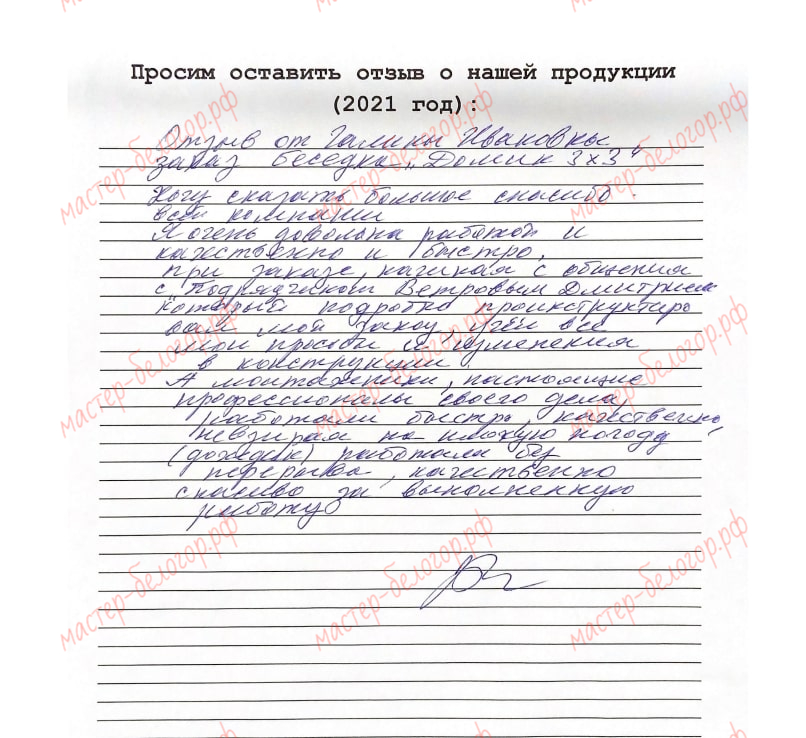 Просим оставить отзыв о нашей продукции
(2021 год):
Отзыв от Галины Ивановны
заказ беседка „Домик 3х3"
Хочу сказать большое спасибо
всей компании
Я очень довольна работой и
качественно и быстро,
при заказе, начиная с общения
с подрядчиком Ветровым Дмитрием
который подробно проинструктиро
вал мой заказ, учёл все
мои просьбы и изменения
в конструкции.
А монтажники, настоящие
профессионалы своего дела
работали быстро, качественно,
невзирая на плохую погоду
(дожди) работали без
перерыва, качественно
спасибо за выполненную
работу
мастер-белогор.рф
мастер-белогор.рф
мастер-белогор.рф
мастер-белогор.рф
мастер-белогор.рф
мастер-белогор.рф
мастер-белогор.рф
мастер-белогор.рф
мастер-белогор.рф